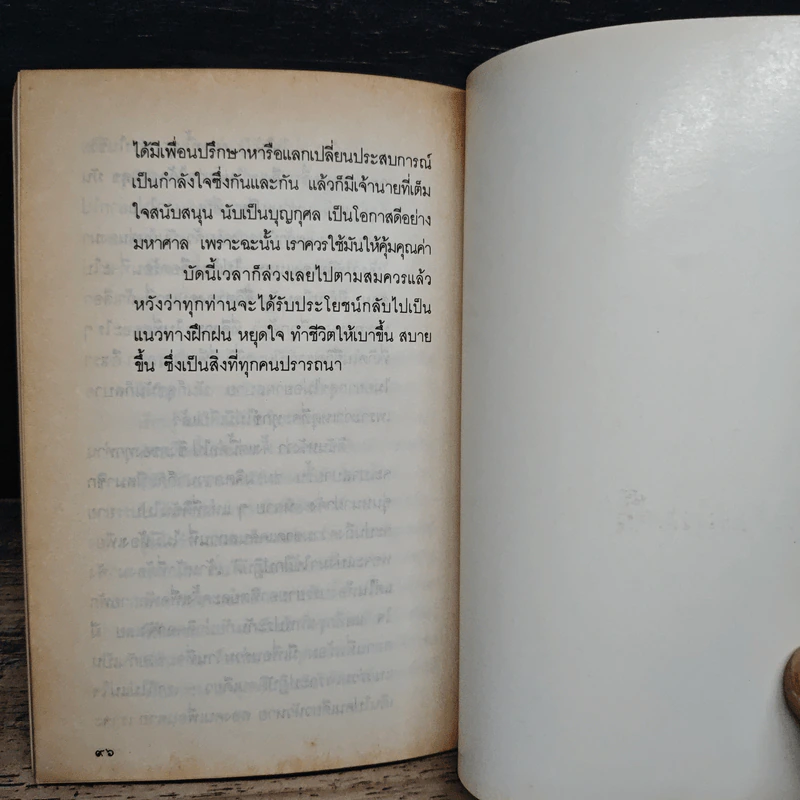 ได้มีเพื่อนปรึกษาหารือแลกเปลี่ยนประสบการณ์
เป็นกำลังใจซึ่งกันและกัน แล้วก็มีเจ้านายที่เต็ม
ใจสนับสนุน นับเป็นบุญกุศล เป็นโอกาสดีอย่าง
มหาศาล เพราะฉะนั้น เราควรใช้มันให้คุ้มคุณค่า
บัดนี้เวลาก็ล่วงเลยไปตามสมควรแล้ว
หวังว่าทุกท่านจะได้รับประโยชน์กลับไปเป็น
แนวทางฝึกฝน หยุดใจ ทำชีวิตให้เบาขึ้น สบาย
ขึ้น ซึ่งเป็นสิ่งที่ทุกคนปรารถนา
๙๖